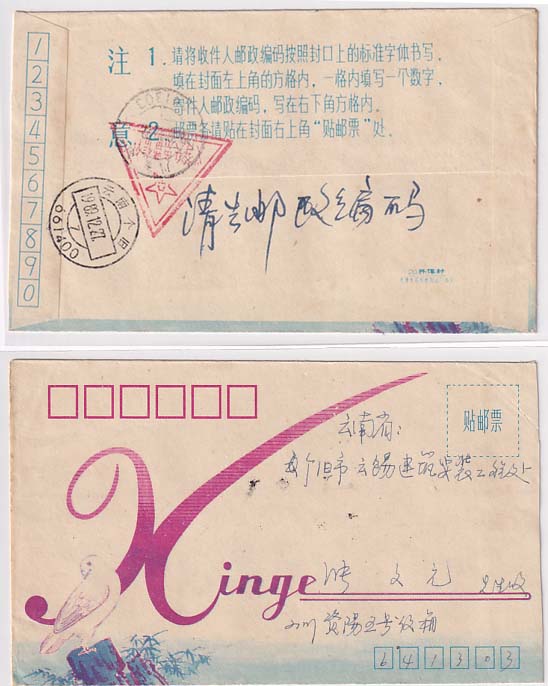 1
2
3
4
5
6
7
8
9
0
注 1. 请将收件人邮政编码按照封口上的标准字体书写,
填在封面左上角的方格内,一格内填写一个数字,
寄件人邮政编码,写在右下角方格内。
意 2. 邮票务请贴在封面右上角“贴邮票”处。
请告邮政编码
661400
贴邮票
云南省:
个旧市云锡建筑安装工程处
Xinge
张文元 先生收
四川资阳五号信箱
641303